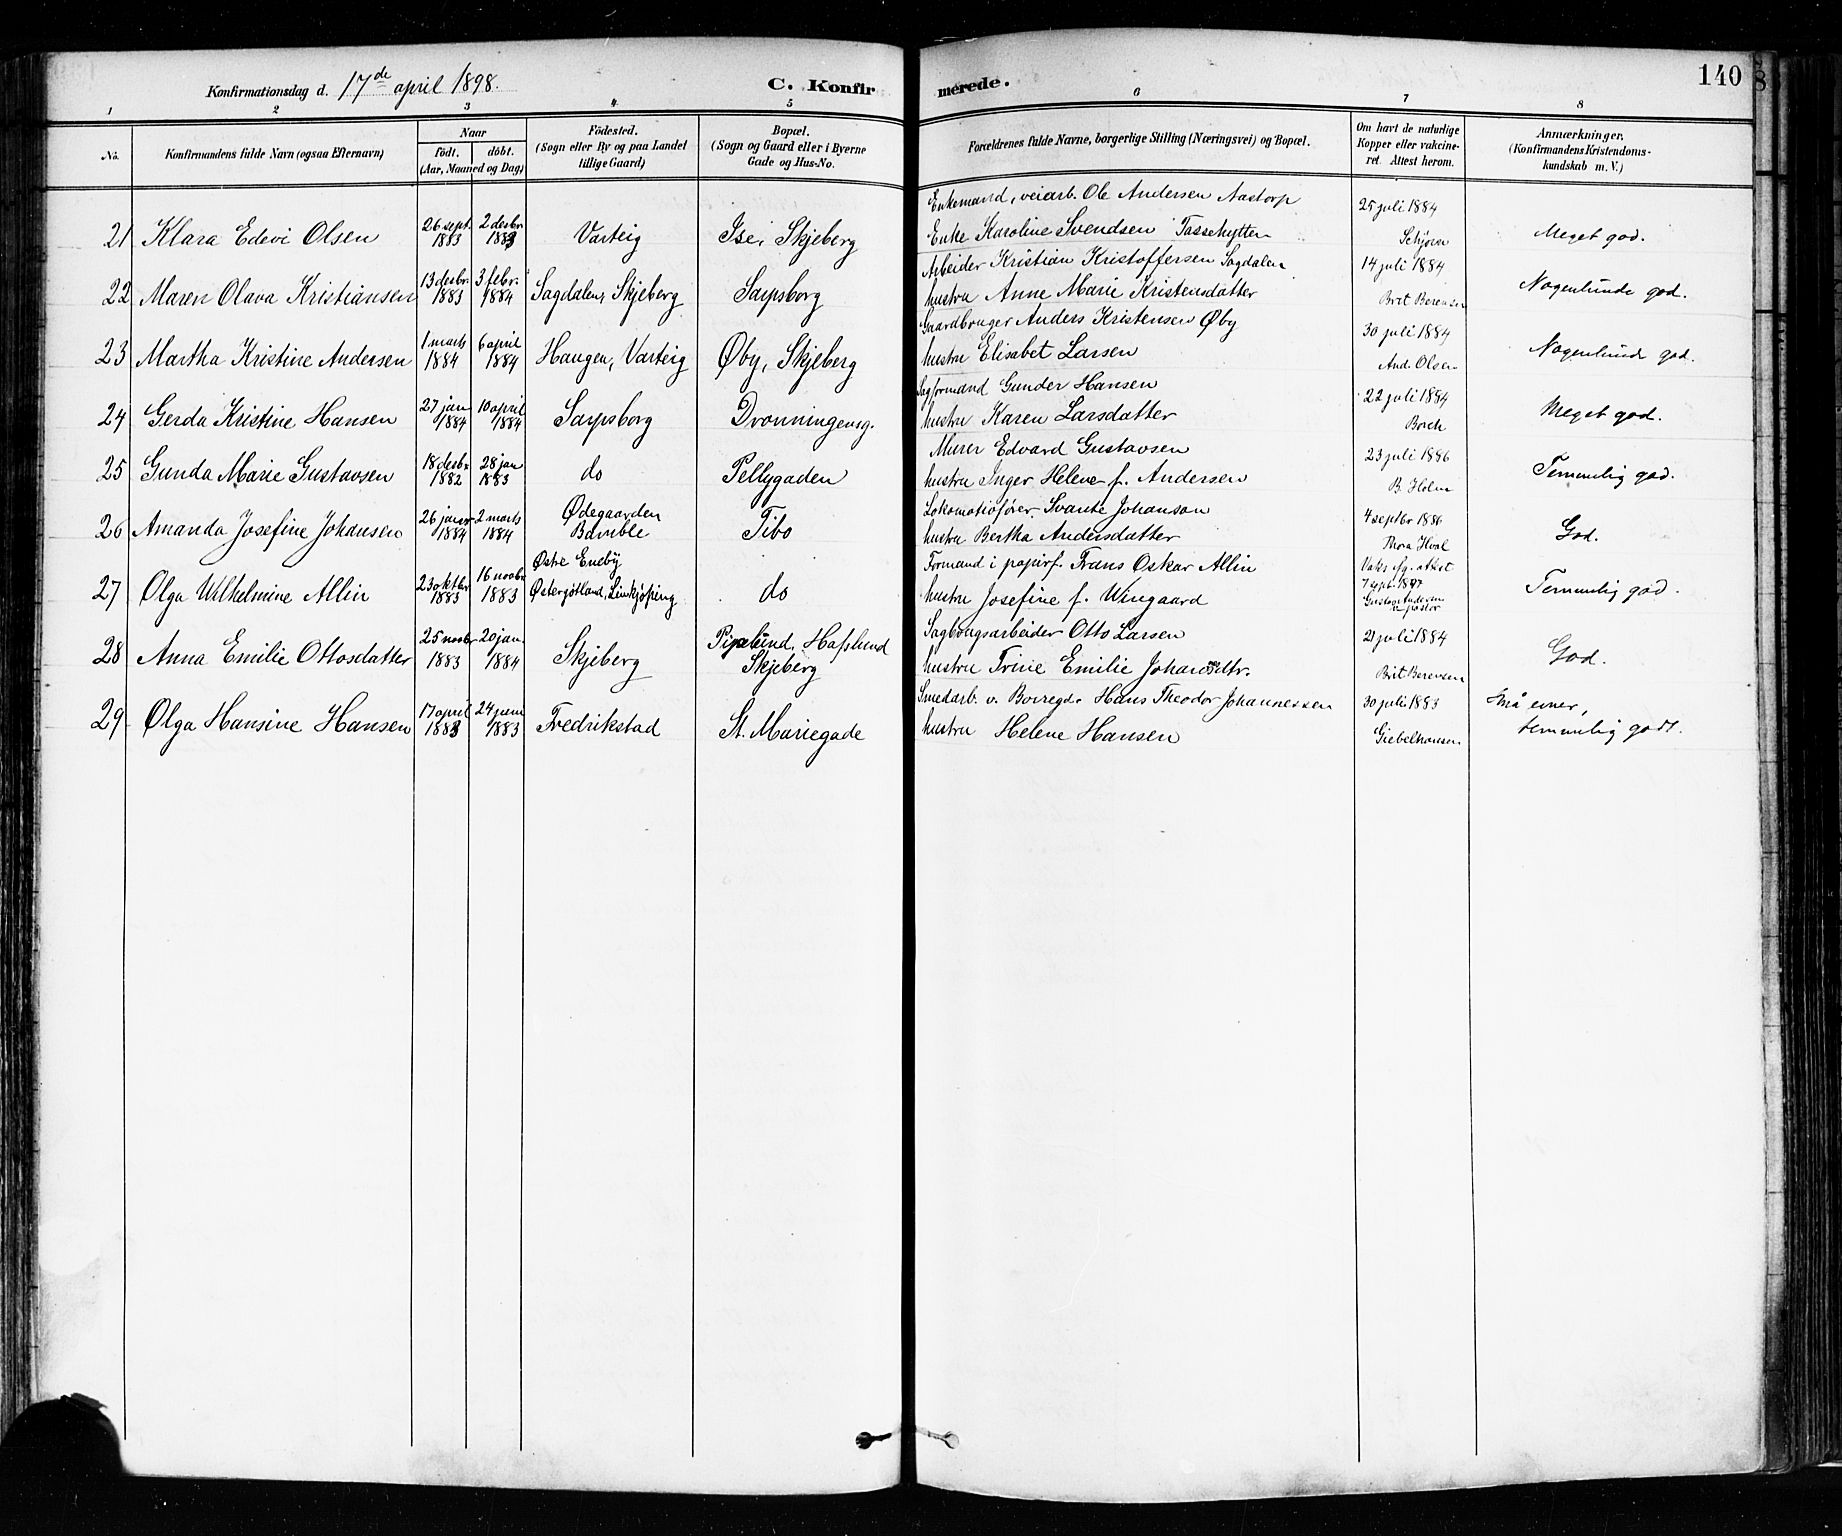 Konfirmationsdag d. 17de april 1898.
C. Konfirmerede.
140
1 2 3 4 5 6 7 8
No. Konfirmandens fulde Navn (ogsaa Efternavn) Naar födt. döbt. (Aar, Maaned og Dag) Födested. (Sogn eller By og paa Landet tillige Gaard) Bopæl. (Sogn og Gaard eller i Byerne Gade og Hus-No. Forældrenes fulde Navne, borgerlige Stilling (Næringsvei) og Bopæl. Om havt de naturlige Kopper eller vakcineret. Attest herom. Anmærkninger. (Konfirmandens Kristendomskundskab m. V.)
21 Klara Edevi Olsen 26 sept. 1883 2 desbr 1883 Varteig Ise, Skjeberg Enkemand, veiarb. Ole Andersen Nastorp
Enke Karoline Svendsen Tassehytten 25 juli 1884 Meget god.
22 Maren Olava Kristiansen 13 desbr. 1883 3 febr. 1884 Sagdalen, Skjeberg Sarpsborg Arbeider Kristian Kristoffersen Sagdalen
hustru Anne Marie Kristensdatter 14 juli 1884 Brit Berensen Nogenlunde god.
23 Martha Kristine Andersen 1 marts 1884 6 april 1884 Haugen, Varteig Øby, Skjeberg Gaardbruger Anders Kristensen Øby
hustru Elisabet Larsen 30 juli 1884 And. Olsen Nogenlunde god.
24 Gerda Kristine Hansen 27 jan 1884 10 april 1884 Sarpsborg Dronningensg. Sagformand Gunder Hansen
hustru Karen Larsdatter 22 juli 1884 Borch Meget god.
25 Gunda Marie Gustavsen 18 desbr 1882 28 jan 1883 do Pellygaden Murer Edvard Gustavsen
hustru Inger Helene f. Andersen 23 juli 1886 B. Holm Temmelig god.
26 Amanda Josefine Johansen 26 januar 1884 2 marts 1884 Ødegaarden Bamble Tibo Lokomotivfører Svante Johanson
hustru Bertha Andersdatter 4 septbr 1886 Thora Hval God.
27 Olga Wilhelmine Allin 23 oktbr 1883 16 novbr 1883 Østre Eneby Østerjøtland, Linkjøping do Formand i papirf. Frans Oskar Allin
hustru Josefine f. Wingaard Vaks. attest 7 sept. 1897 Gustav Andersen pastor Temmelig god.
28 Anna Emilie Ottosdatter 25 novbr 1883 20 jan. 1884 Skjeberg Pipelund, Hafslund Skjeberg Sagbrugsarbeider Otto Larsen
hustru Trine Emilie Johansdtr. 21 juli 1884 Brit Berensen God.
29 Olga Hansine Hansen 17 april 1883 24 juni 1883 Fredrikstad St. Mariegade Smedarb. v. Borregd. Hans Theodor Johannessen
hustru Helene Hansen 30 juli 1883 Giebelhausen Små evner, temmelig godt.